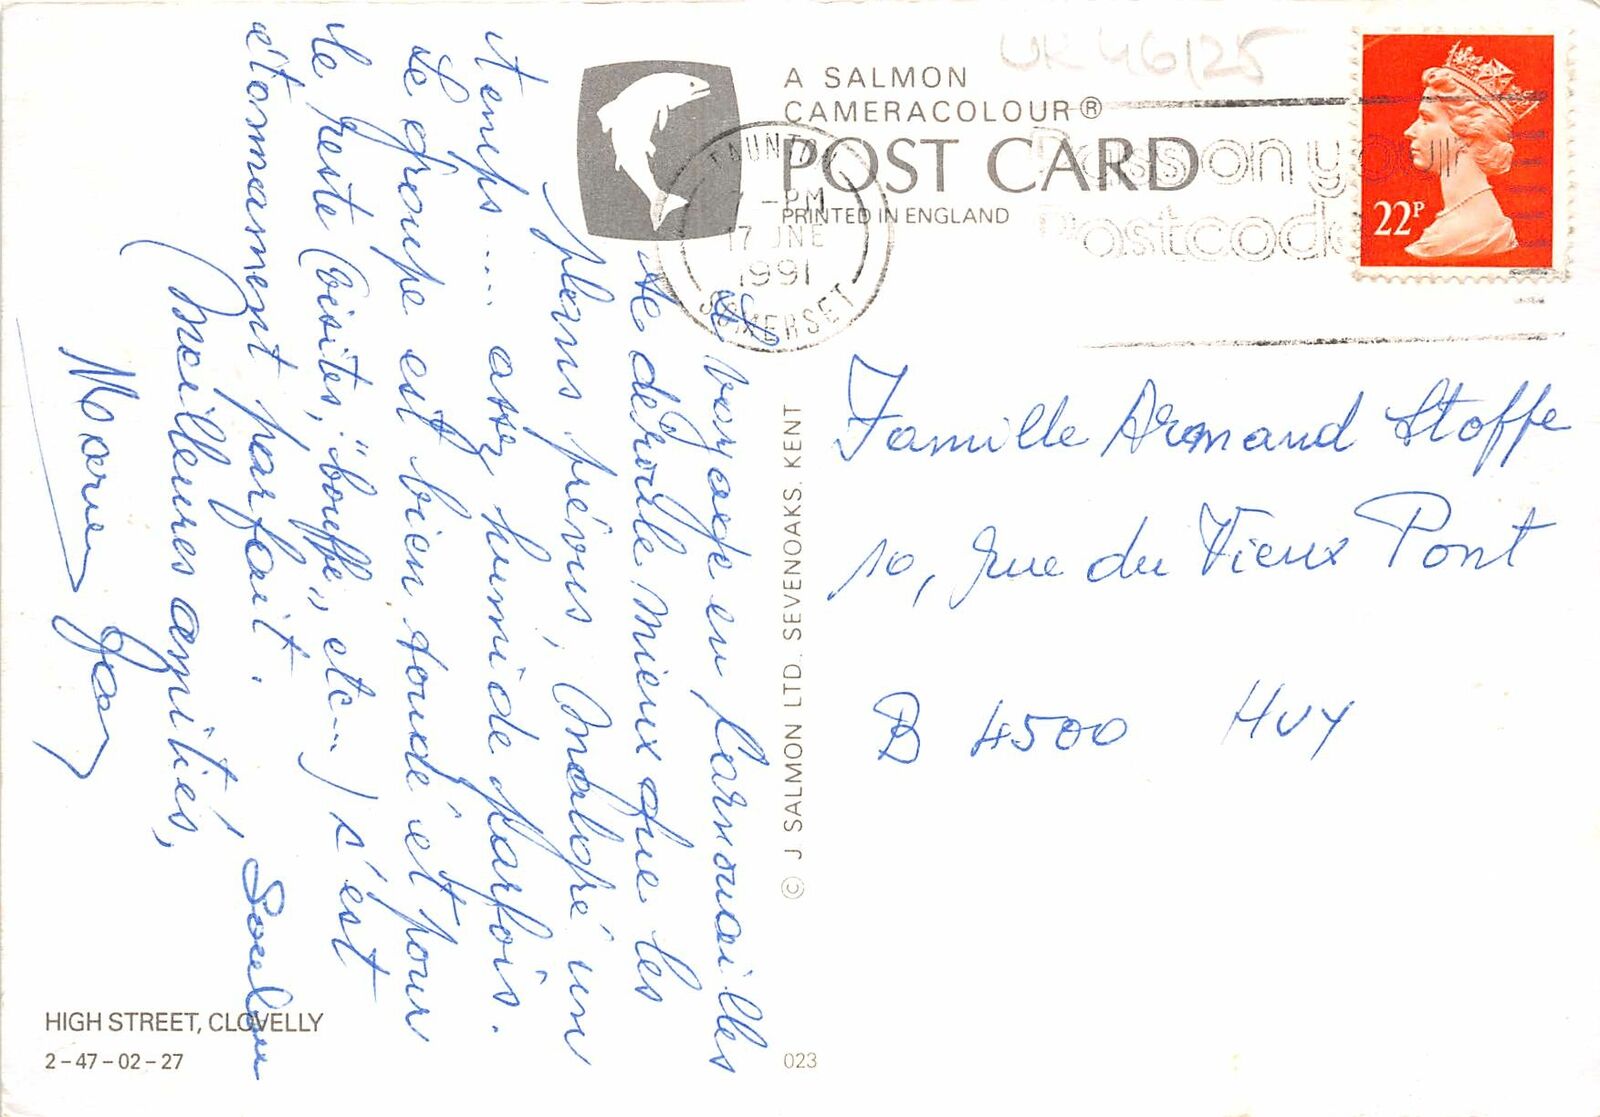 UK 46/25
A SALMON
CAMERACOLOUR®
POST CARD
PRINTED IN ENGLAND
TAUNTON
-PM
17 JNE
1991
SOMERSET
Pass on your
Postcode
22P
Le voyage en Cornouailles
se déroule mieux que les
plans prévus, malgré un
temps.... assez humide parfois.
Le groupe est bien soudé et pour
le reste (visites, "bouffe", etc...) s'est
étonnamment parfait.
Meilleures amitiés,
© J SALMON LTD. SEVENOAKS. KENT
Famille Armand Stoffe
10, rue du Vieux Pont
B 4500 HUY
HIGH STREET, CLOVELLY
2-47-02-27
023